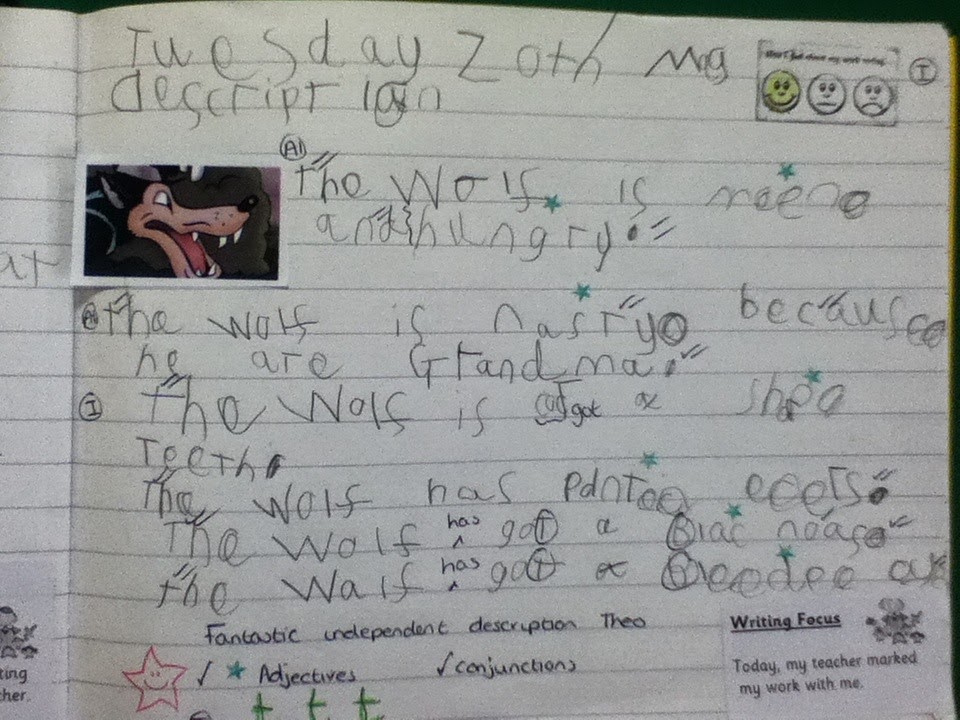 Tuesday 20th My
description
I
AI
The Wolf is meene
and hungry.
The Wolf is nastryo because
he are Grandma.
I The Wolf is got a shpa
Teeth.
The Wolf has pdntee eeers.
The Wolf has got a Blac noase
The Walf has got a Beedee
Fantastic independent description Theo
✓ ★ Adjectives ✓ conjunctions
Writing Focus
Today, my teacher marked
my work with me.
ar
ting
her.
t t t